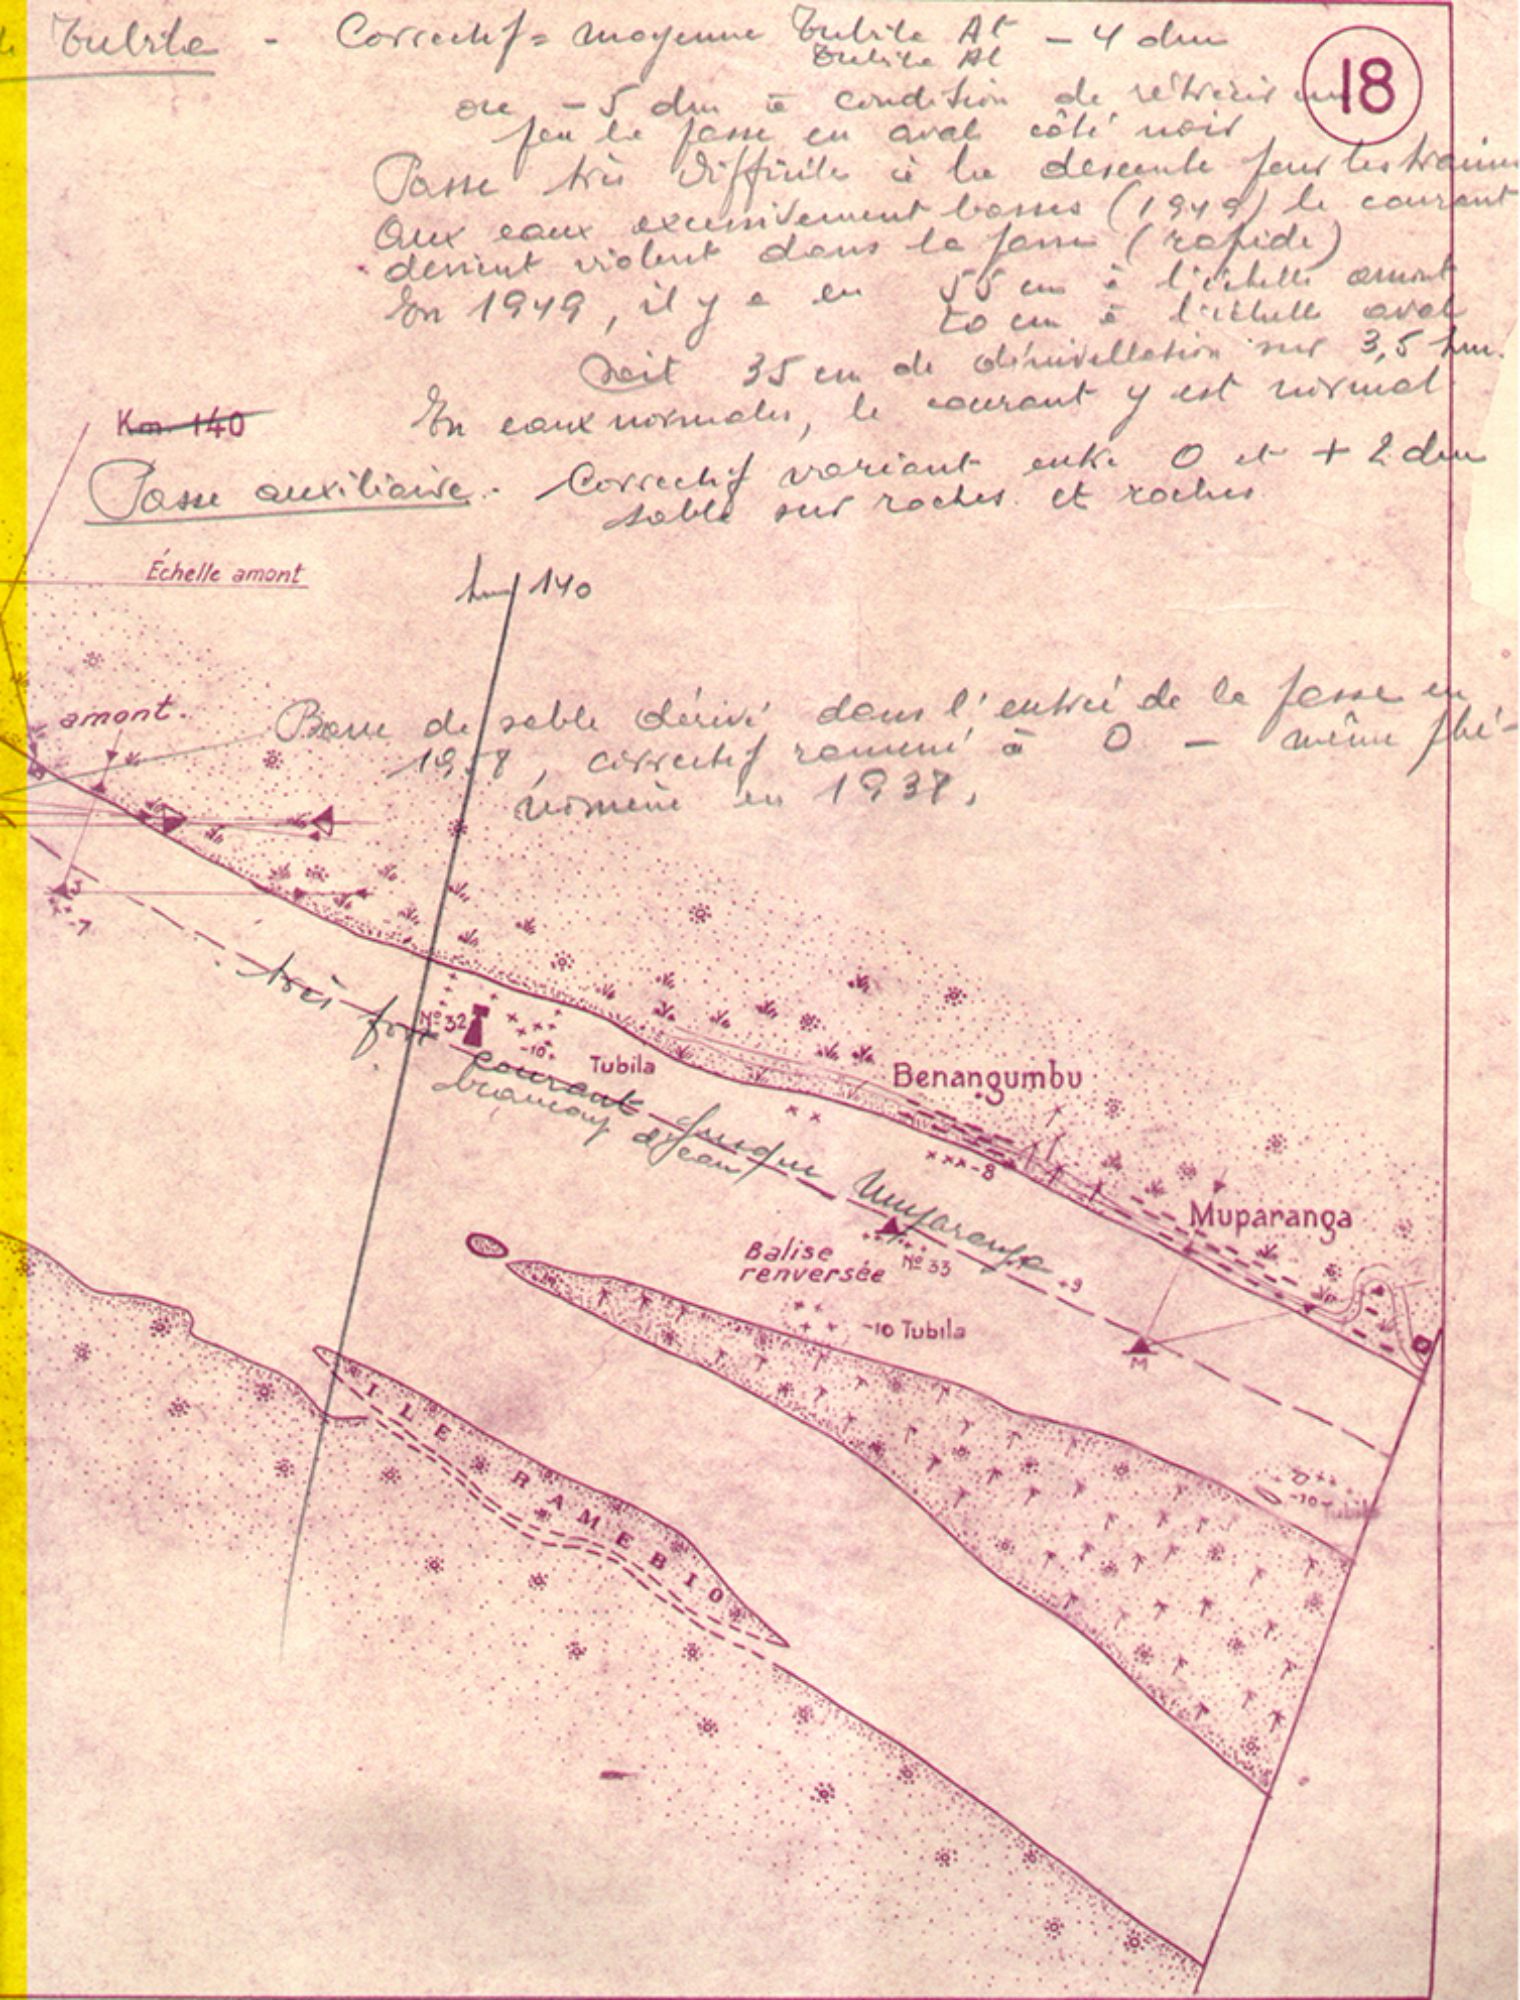 Tubila - Correctif = moyenne Tubila At - 4 dm
Tubila Al
ou - 5 dm à condition de rétrécir un
peu la passe en aval côté noir
Passe très difficile à la descente pour les trains
Aux eaux excessivement basses (1949) le courant
devient violent dans la passe (rapide)
En 1949, il y a eu 55 cm à l'échelle amont
20 cm à l'échelle aval
Soit 35 cm de dénivellation sur 3,5 km.
En eaux normales, le courant y est normal
18
Km. 140
Passe auxiliaire. - Correctif variant entre 0 et + 2 dm
sable sur roches et roches
Échelle amont
km 140
amont.
Banc de sable dérivé dans l'entrée de la passe en
correctif ramené à 0 - même phé-
nomène en 1938.
-7
très fort courant jusque Muparanga
beaucoup d'eau
Nº 32
-10
Tubila
Benangumbu
-8
Muparanga
Balise
renversée
Nº 33
+9
-10 Tubila
M
-10
Tubila
ILE RAMEBIO